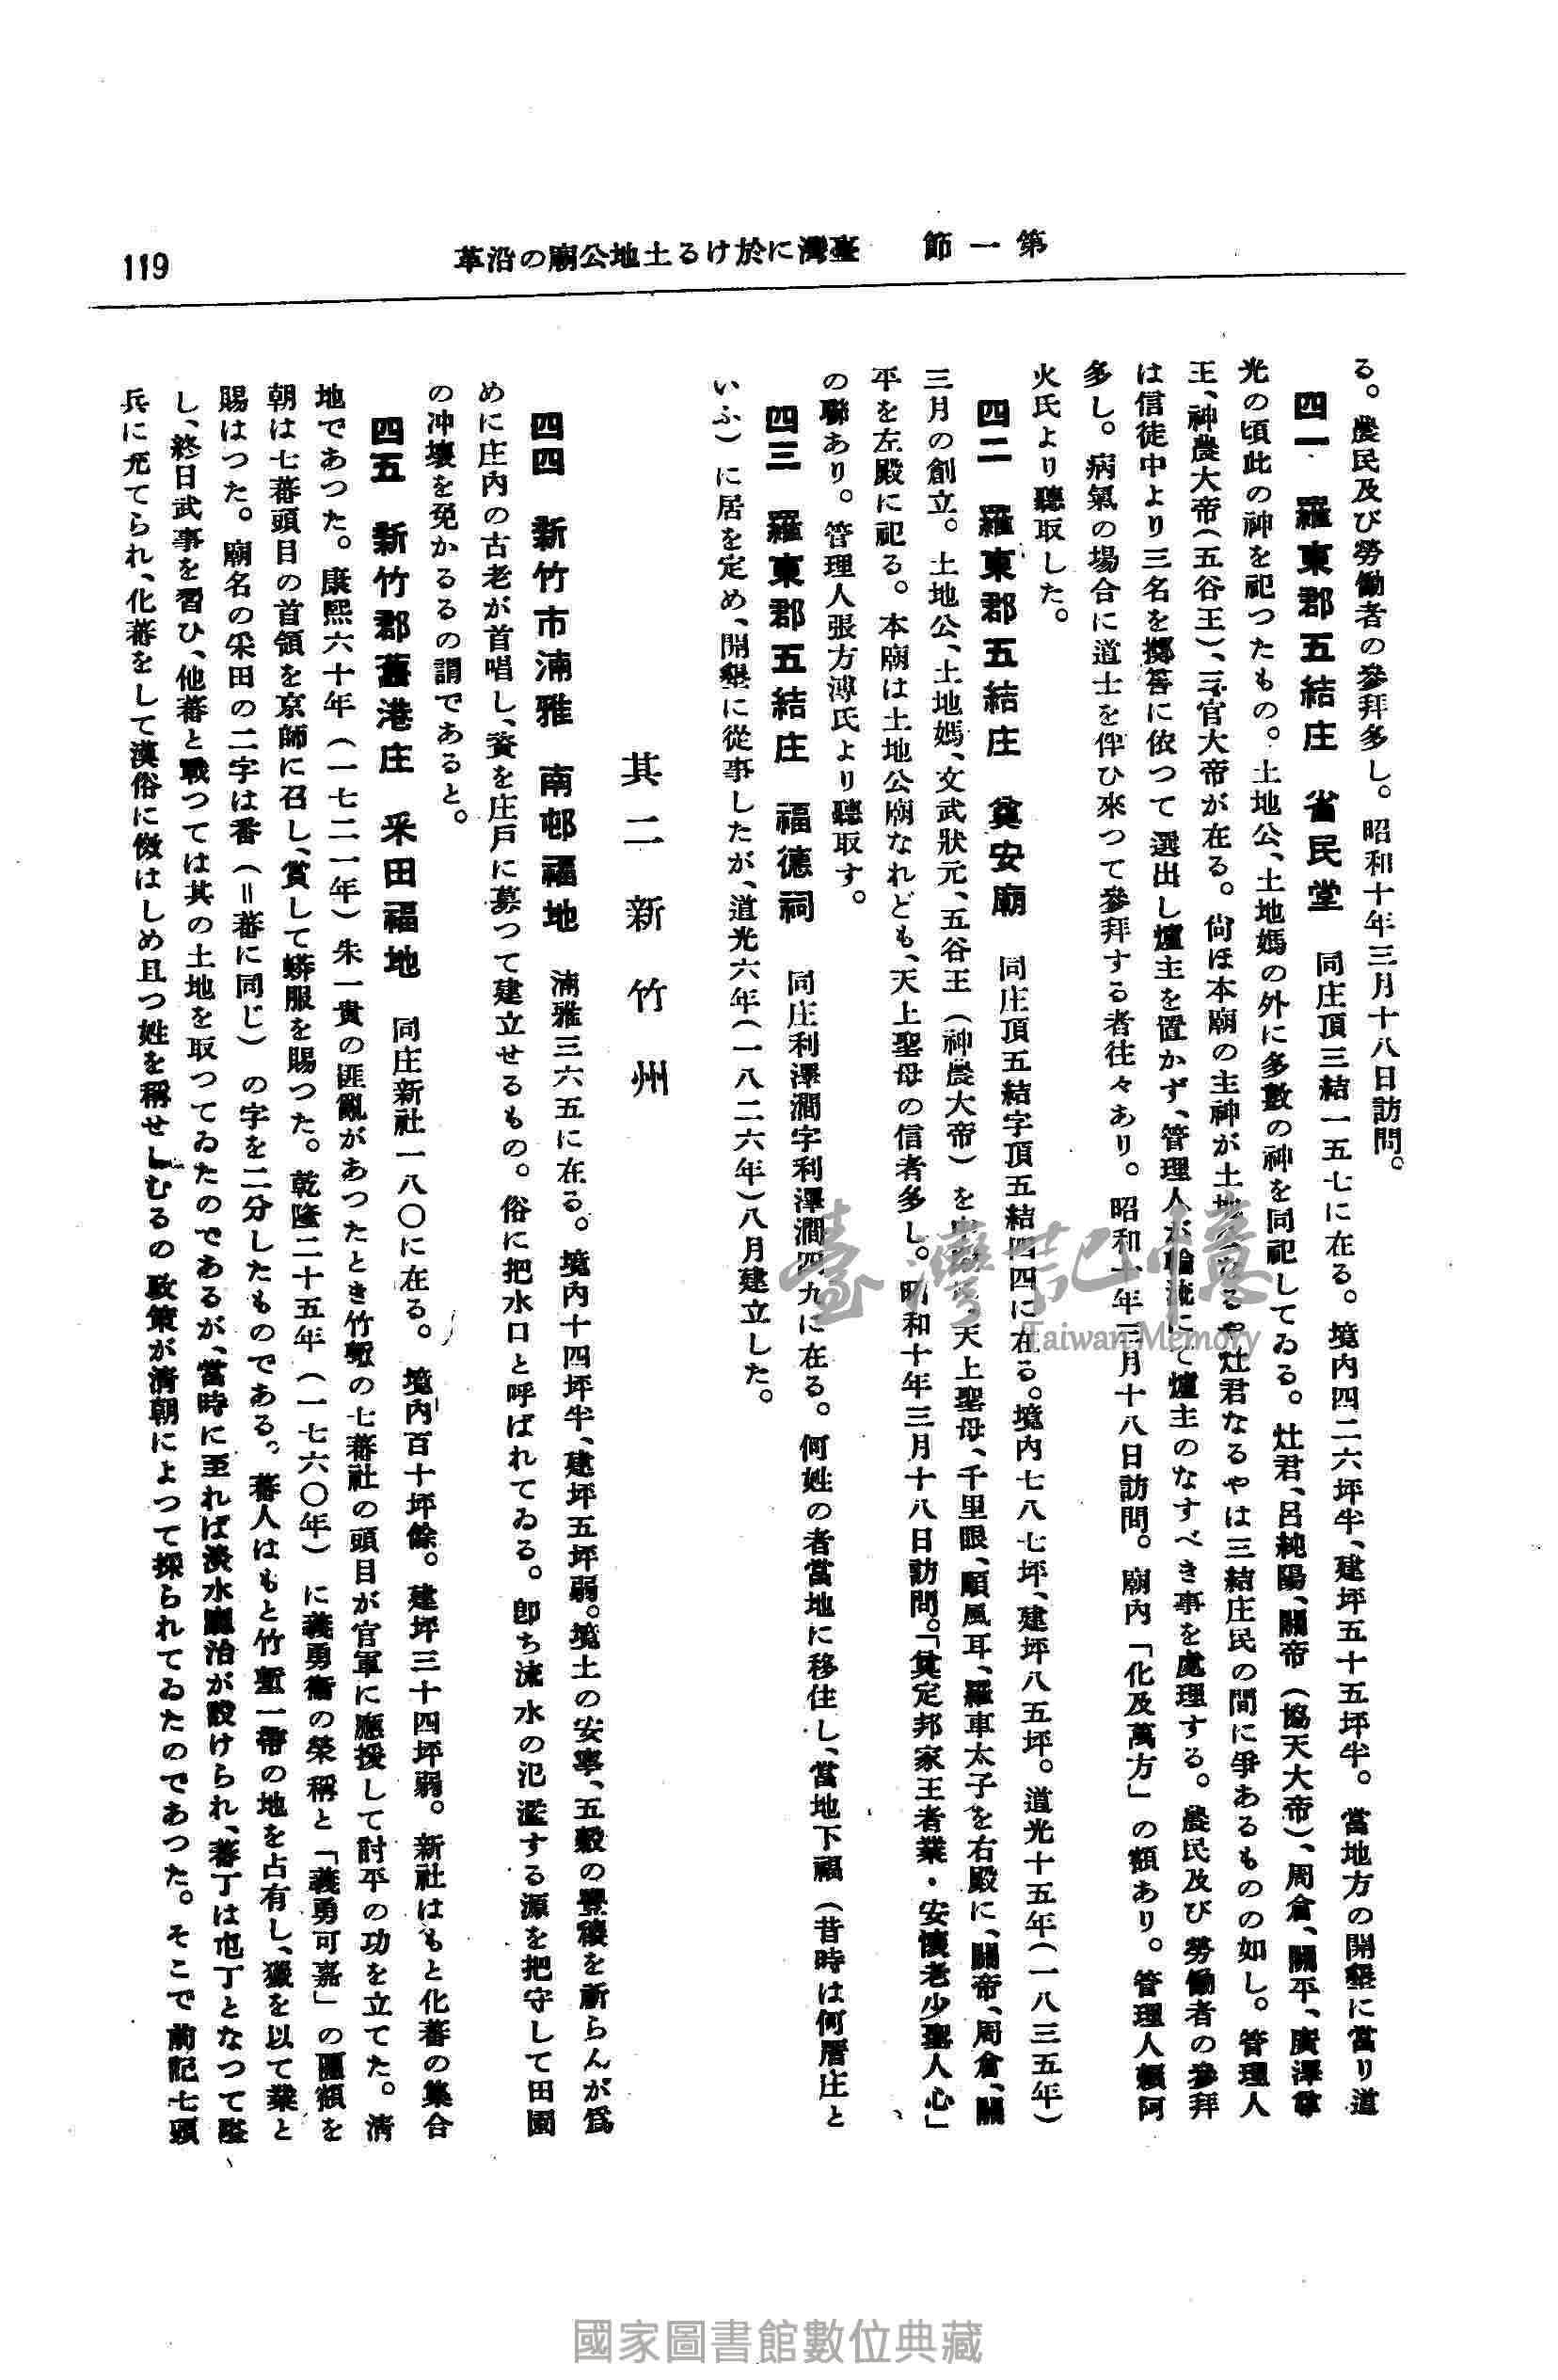 第一節　臺灣に於ける土地公廟の沿革
119
る。農民及び勞働者の參拜多し。昭和十年三月十八日訪問。
四一　羅東郡五結庄　省民堂　同庄頂三結一五七に在る。境內四二六坪半、建坪五十五坪半。當地方の開墾に當り道
光の頃此の神を祀つたもの。土地公、土地媽の外に多數の神を同祀してゐる。灶君、呂純陽、關帝（協天大帝）、周倉、關平、廣澤尊
王、神農大帝（五谷王）、三官大帝が在る。尙ほ本廟の主神が土地なるや灶君なるやは三結庄民の間に爭あるものの如し。管理人
は信徒中より三名を擲筶に依つて選出し爐主を置かず、管理人が輪流にて爐主のなすべき事を處理する。農民及び勞働者の參拜
多し。病氣の場合に道士を伴ひ來つて參拜する者往々あり。昭和十年三月十八日訪問。廟內「化及萬方」の額あり。管理人賴阿
火氏より聽取した。
四二　羅東郡五結庄　奠安廟　同庄頂五結字頂五結四四に在る。境內七八七坪、建坪八五坪。道光十五年（一八三五年）
三月の創立。土地公、土地媽、文武狀元、五谷王（神農大帝）を、天上聖母、千里眼、順風耳、羅車太子を右殿に、關帝、周倉、關
平を左殿に祀る。本廟は土地公廟なれども、天上聖母の信者多し。昭和十年三月十八日訪問。「奠定邦家王者業・安懷老少聖人心」
の聯あり。管理人張方溥氏より聽取す。
四三　羅東郡五結庄　福德祠　同庄利澤澗字利澤澗四九に在る。何姓の者當地に移住し、當地下福（昔時は何厝庄と
いふ）に居を定め、開墾に從事したが、道光六年（一八二六年）八月建立した。
其二　新竹州
四四　新竹市湳雅　南邨福地　湳雅三六五に在る。境內十四坪半、建坪五坪弱。境土の安寧、五穀の豐穰を祈らんが爲
めに庄內の古老が首唱し、資を庄戶に募つて建立せるもの。俗に把水口と呼ばれてゐる。卽ち洩水の氾濫する源を把守して田園
の冲壞を免かるるの謂であると。
四五　新竹郡舊港庄　釆田福地　同庄新社一八〇に在る。境內百十坪餘。建坪三十四坪弱。新社はもと化蕃の集合
地であつた。康熙六十年（一七二一年）朱一貴の匪亂があつたとき竹塹の七蕃社の頭目が官軍に應援して討平の功を立てた。淸
朝は七蕃頭目の首領を京師に召し、賞して蟒服を賜つた。乾隆二十五年（一七六〇年）に義勇衞の榮稱と「義勇可嘉」の匾額を
賜はつた。廟名の釆田の二字は番（＝蕃に同じ）の字を二分したものである。蕃人はもと竹塹一帶の地を占有し、獵を以て業と
し、終日武事を習ひ、他蕃と戰つては其の土地を取つてゐたのであるが、當時に至れば淡水廳治が設けられ、蕃丁は屯丁となつて隘
兵に充てられ、化蕃をして漢俗に倣はしめ且つ姓を稱せしむるの政策が淸朝によつて採られてゐたのであつた。そこで前記七頭
臺灣記憶
Taiwan Memory
國家圖書館數位典藏